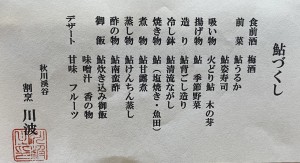 鮎づくし
食前酒　梅酒
前菜　鮎うるか
鮎姿寿司
火どり鮎　木の芽
吸い物
造り　鮎背ごし造り
揚げ物　鮎　季節野菜
冷し鉢　鮎清流ながし
焼き物　鮎（塩焼き・魚田）
煮物　鮎甘露煮
蒸し物　鮎けんちん蒸し
酢の物　鮎南蛮酢
御飯　鮎炊き込み御飯
味噌汁　香の物
デザート　甘味　フルーツ
秋川渓谷
割烹　川波